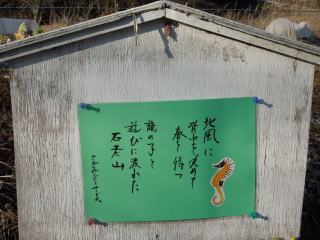 北風に
背中を丸めて
春を待つ
龍の子と
遊びに疲れた
石老山